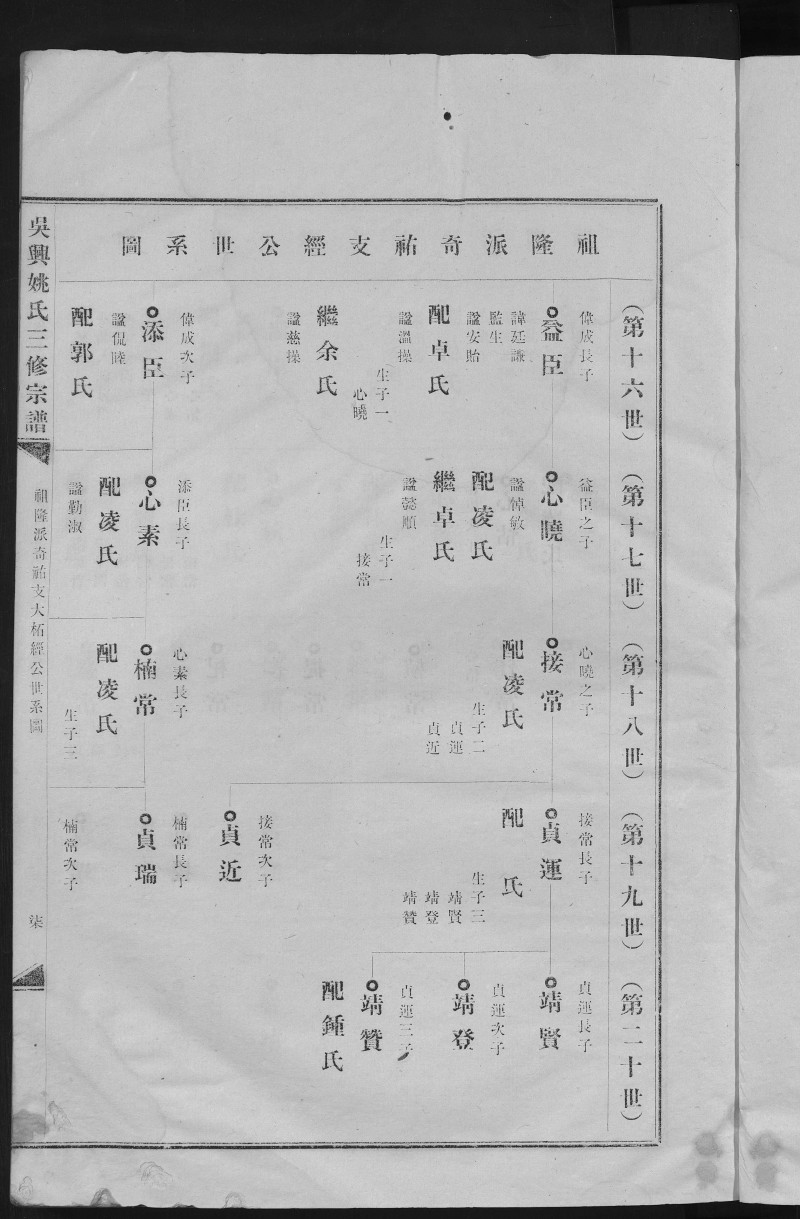 祖隆派奇祐支經公世系圖
（第十六世）
偉成長子
益臣
諱廷謙
監生
諡安貽
配卓氏
諡溫操
生子一
心曉
繼余氏
諡慈操
偉成次子
添臣
諡侃睦
配郭氏
（第十七世）
益臣之子
心曉
諡悼敏
配凌氏
繼卓氏
諡懿順
生子一
接常
添臣長子
心素
配凌氏
諡勤淑
（第十八世）
心曉之子
接常
配凌氏
生子二
貞運
貞近
心素長子
楠常
配凌氏
生子三
（第十九世）
接常長子
貞運
配　氏
生子三
靖賢
靖登
靖贊
接常次子
貞近
楠常長子
貞瑞
楠常次子
（第二十世）
貞運長子
靖賢
貞運次子
靖登
貞運三子
靖贊
配鍾氏
吳興姚氏三修宗譜
祖隆派奇祐支大柘經公世系圖
柒